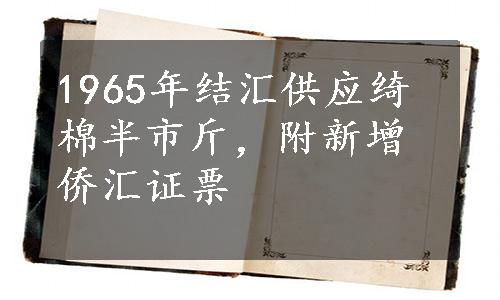 1965年结汇供应绮
棉半市斤，附新增
侨汇证票